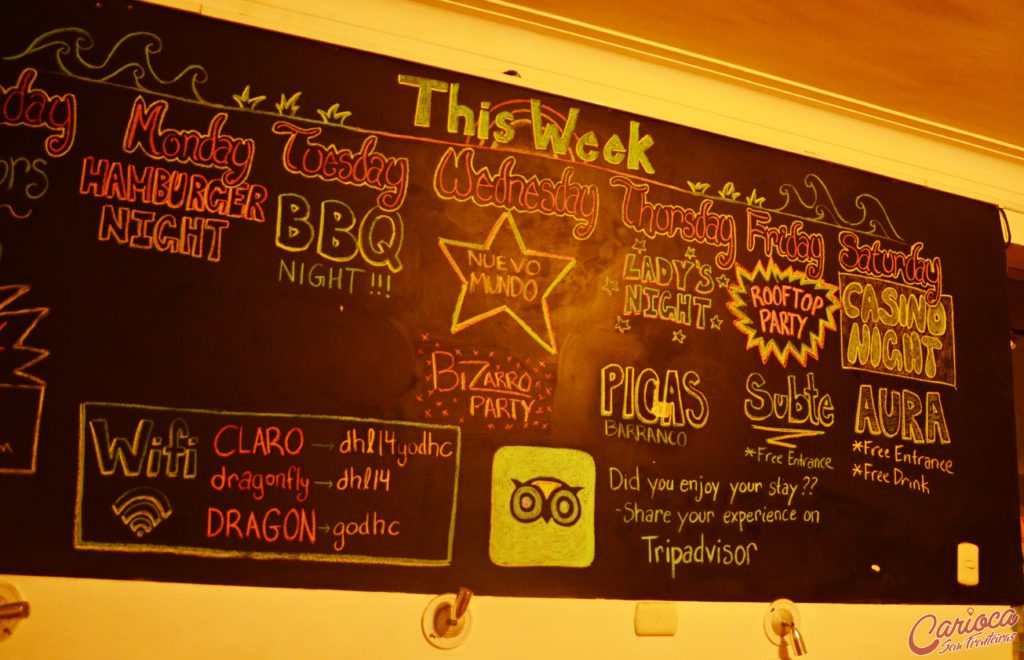 This Week
day
ors
Monday
HAMBURGER
NIGHT
Tuesday
BBQ
NIGHT !!!
Wednesday
NUEVO
MUNDO
BiZARRO
PARTY
Thursday
LADY'S
NIGHT
PICAS
BARRANCO
Friday
ROOFTOP
PARTY
Subte
*Free Entrance
Saturday
CASINO
NIGHT
AURA
*Free Entrance
*Free Drink
Wifi
CLARO → dhl14godhc
dragonfly → dhl14
DRAGON → godhc
Did you enjoy your stay??
-Share your experience on
Tripadvisor
Carioca
Sem Fronteiras